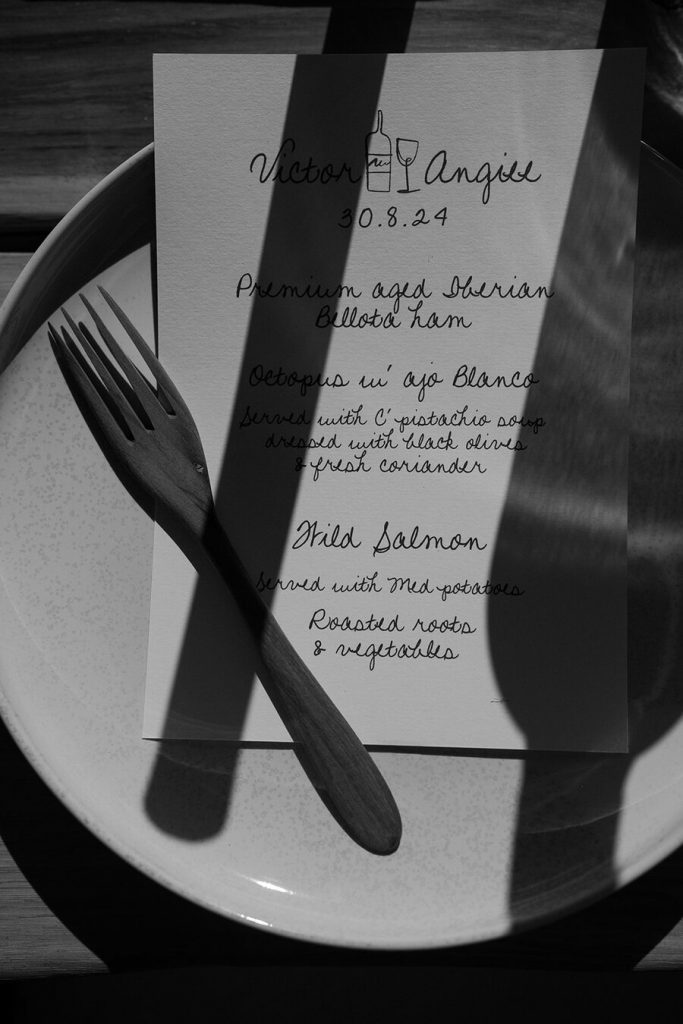 Victor Angiee
30.8.24
Premium aged Iberian
Bellota ham
Octopus w' ajo Blanco
Served with C' pistachio soup
dressed with black olives
& fresh coriander
Wild Salmon
Served with Med potatoes
Roasted roots
& vegetables